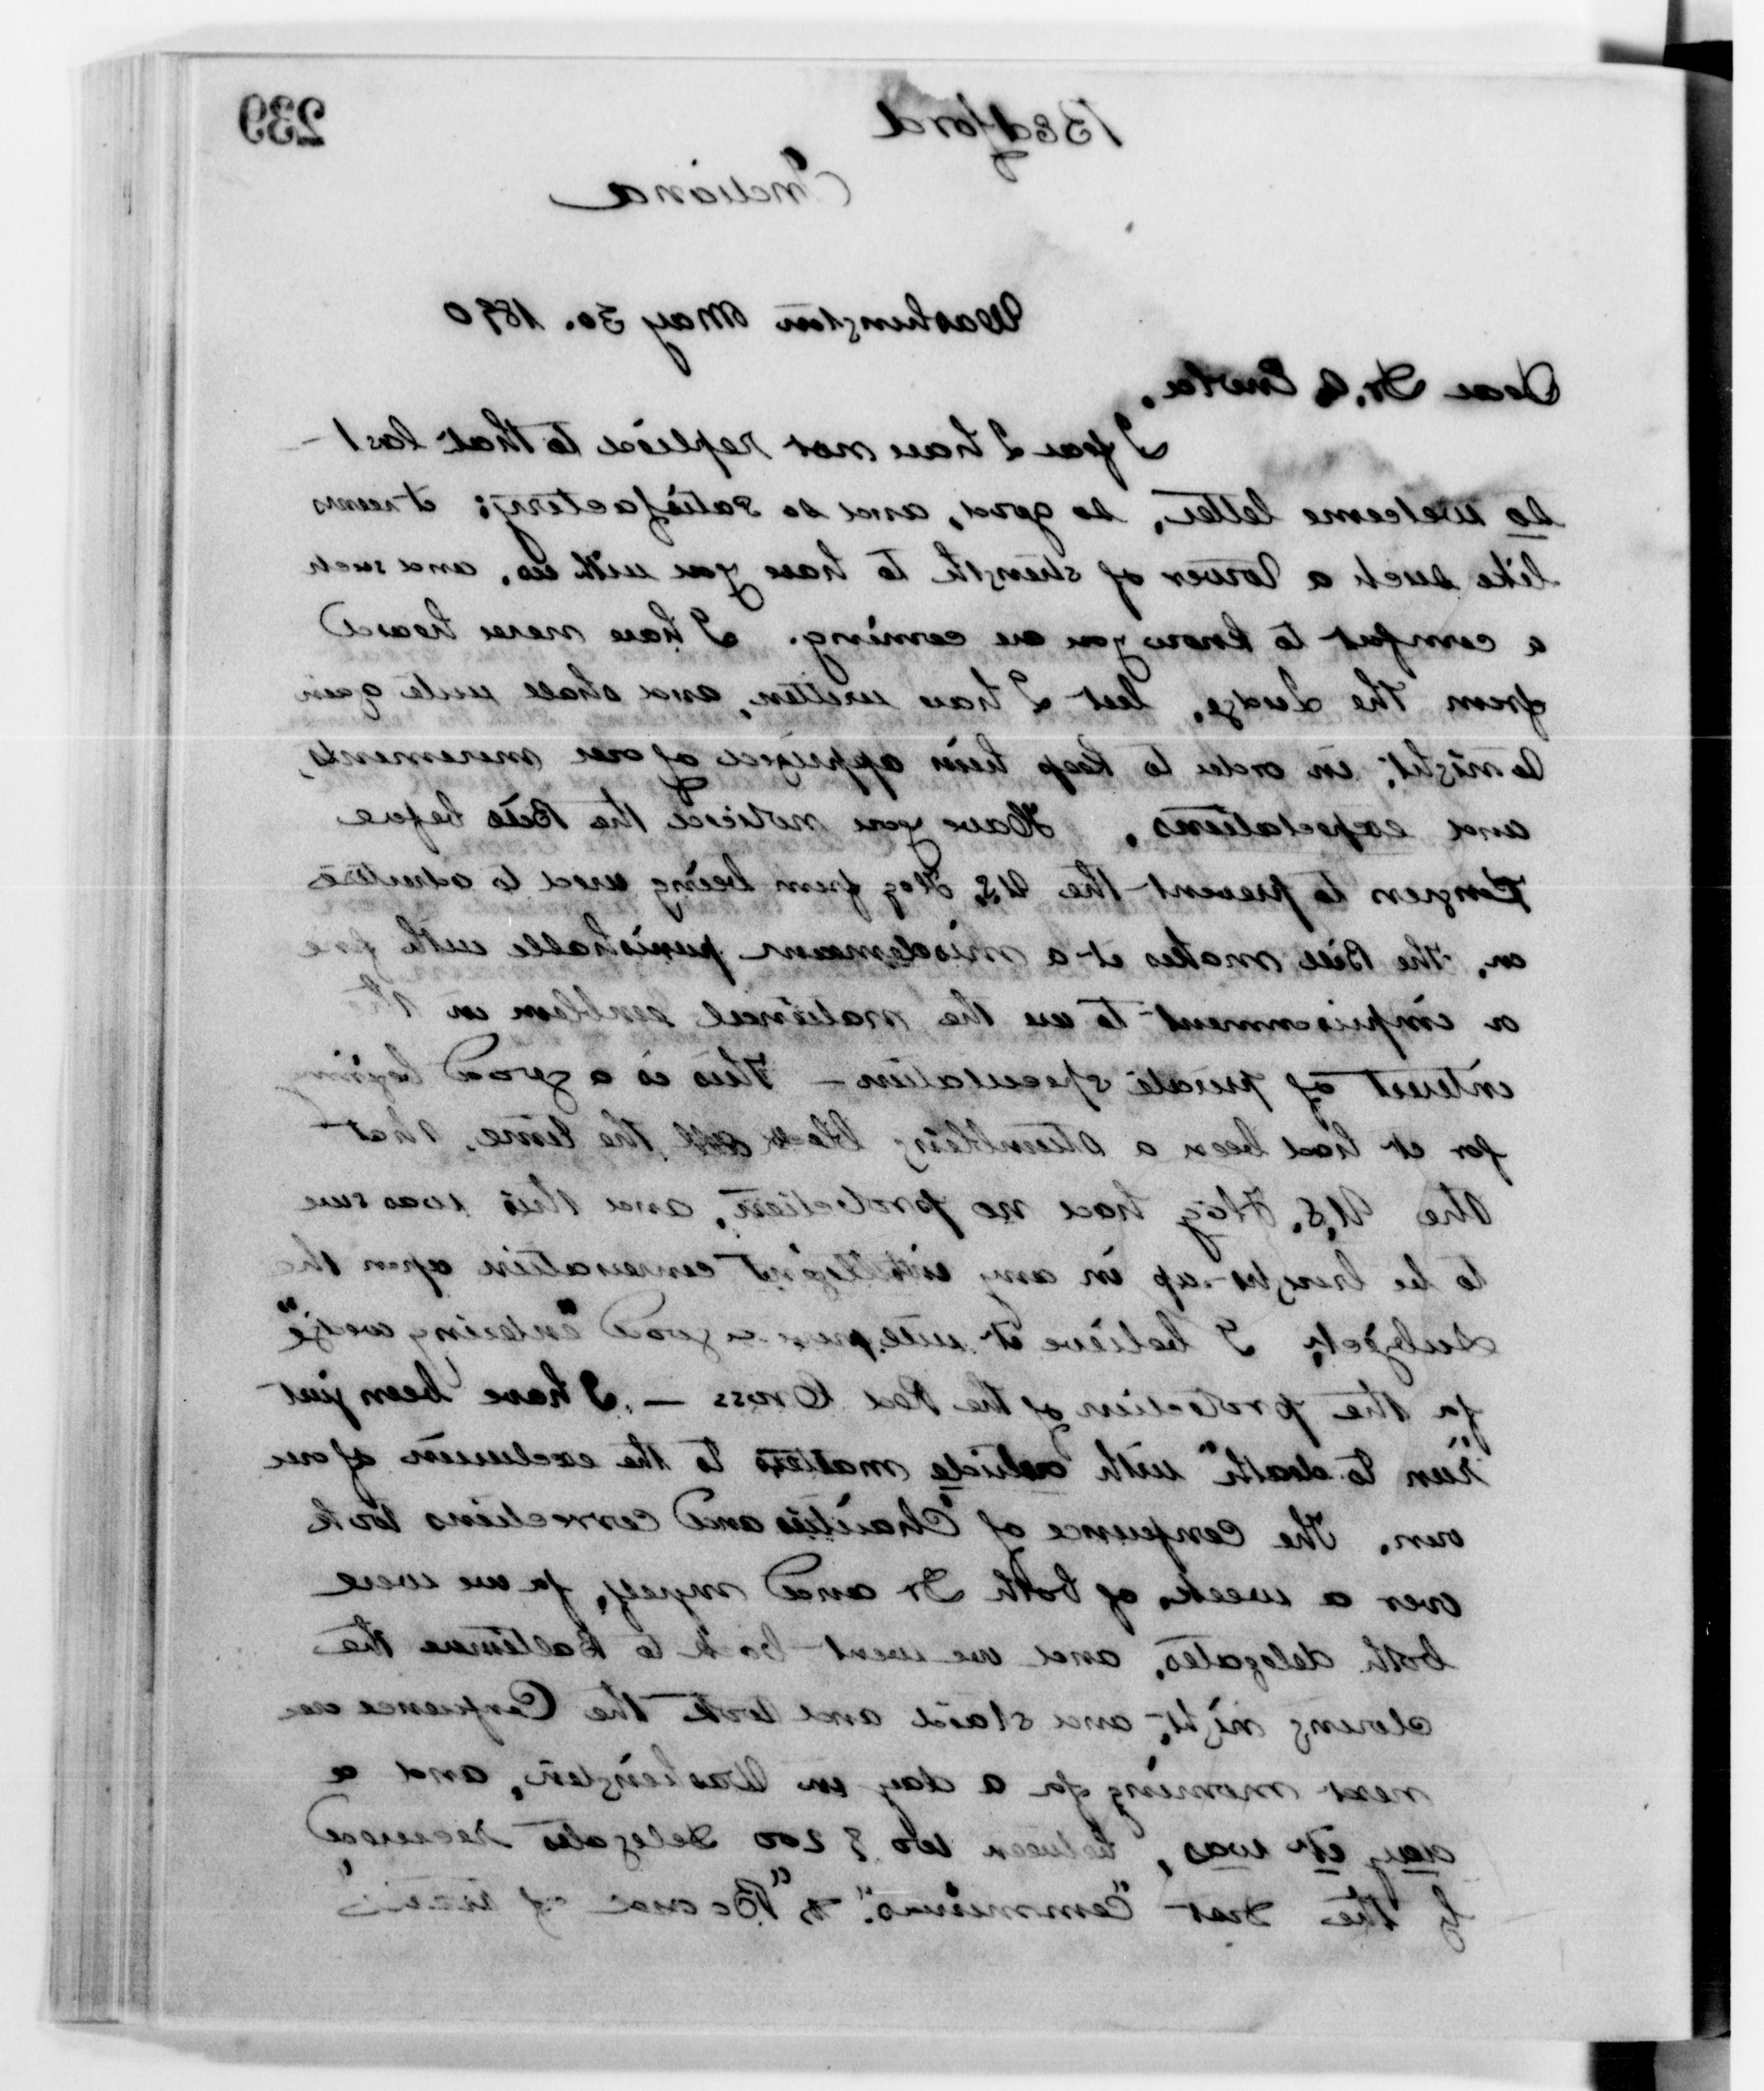 239
Bedford
Indiana
Washington May 30. 1890
Dear Dr.
I fear I have not replied to that last
so welcome letter, so good, and so satisfactory; it seems
like such a tower of strength to have you with us, and such
a comfort to know you are coming. I have never heard
from the Judge, but I have written, and shall write again
to night; in order to keep him apprized of our movements,
and expectations. Have you noticed the Bill before
Congress to prevent the U.S. Flag from being used to advertise
on, the Bill makes it a misdemeanor punishable with fine
or imprisonment to use the national emblem in th
interest of private speculation — This is a good begining
for it had been a stumbling block all the time, that
the U.S. Flag had no protection, and this was sure
to be brought up in any intelligent conversation upon the
subject, I believe it will prove a good "entering wedge"
for the protection of the Red Cross —. I have been just
"run to death" with outside matters to the exclusion of our
own. The Conference of "Charities and Corrections took
over a week, of both Dr and myself, for we were
both delegates, and we went back to Baltimore the
closing night, and staid and took the Conference
next morning for a day in Washington, and a
day it was, between 100 & 200 Delegates received
by the Dist "Commissios". & "Board of